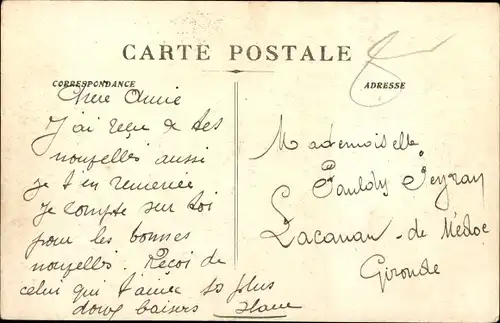 CARTE POSTALE
CORRESPONDANCE
Chère Amie
J'ai reçu de tes
nouvelles aussi
je t'en remercie
Je compte sur toi
pour les bonnes
nouvelles. Reçoi de
celui qui t'aime so plus
doux baisers
ADRESSE
Mademoiselle
Peyran
Lacanau-de Médoc
Gironde